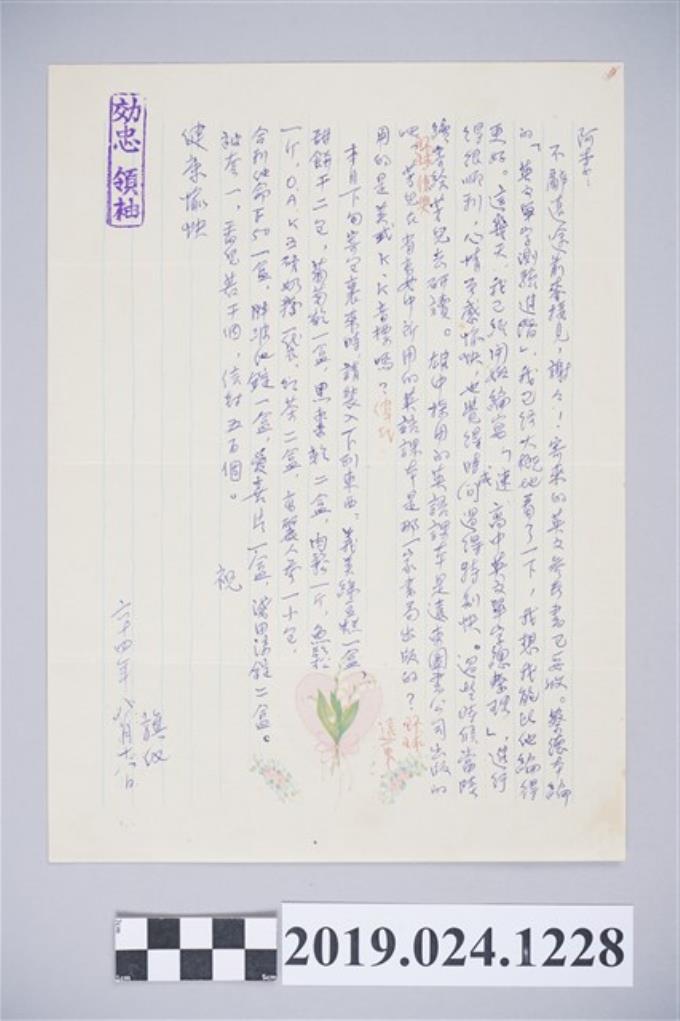 阿季：
不辭遠途前來接見，謝々！寄來的英文參考書已妥收。蔡德本編
的「英文單字測驗進階」，我已經大概地看了一下，我想我能比他編得
更好。這幾天，我已經開始編寫「速成高中英文單字總整理」，進行
得很順利，心情亦感愉快，也覺得時间過得特別快。過些時候當陸
續寄給芳兒去研讀。雄中採用的英語課本是遠東圖書公司出版的
吧，芳兒在省高女中所用的英語課本是那一家書局出版的？ 遠東
用的是美式K.K音標嗎？
本月下旬寄包裹來時，請裝入下列東西：義美綠豆糕一盒
甜餅干二包，葡萄乾一盒，黑棗乾二盒，肉鬆一斤，魚鬆
一斤，O.A.K五磅奶粉一袋，红茶二盒，高麗人參一十包，
合利他命F50一盒，一盒，一盒，二盒。
一，若干個，信封五百個。
祝
健康愉快
旗
六十四年八月十六日
効忠 領袖
2019.024.1228